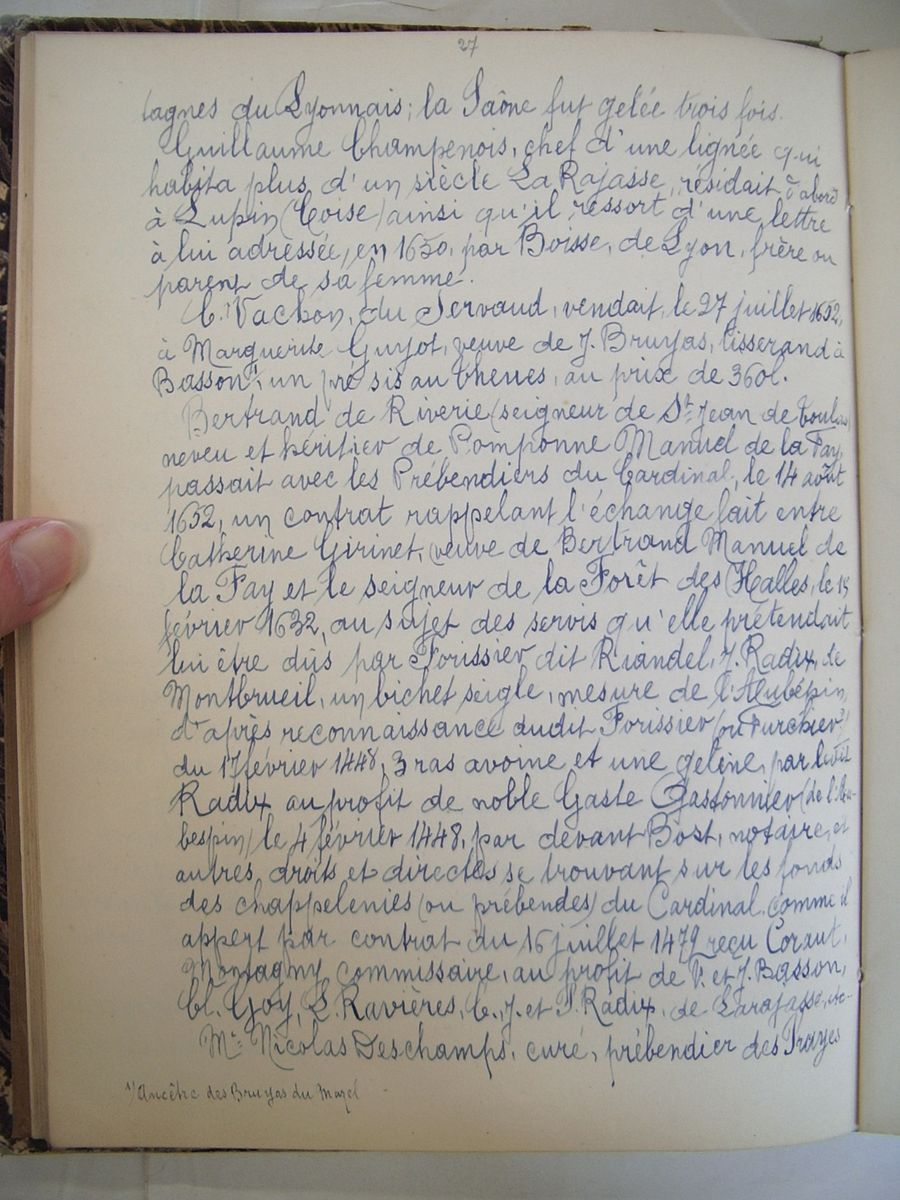 27
tagnes du Lyonnais; la Saône fut gelée trois fois.
Guillaume Champenois, chef d'une lignée qui
habita plus d'un siècle La Rajasse, résidait d'abord
à Lupin (Coise) ainsi qu'il ressort d'une lettre
à lui adressée, en 1650, par Boisse, de Lyon, frère ou
parent de sa femme.
C. Vachon, du Servaud, vendait, le 27 juillet 1652,
à Marguerite Guyot, veuve de J. Bruyas, tisserand à
Basson ¹⁾, un pré sis au Thenes, au prix de 360l.
Bertrand de Riverie (seigneur de St Jean de Toulas)
neveu et héritier de Pomponne Manuel de la Fay,
passait avec les Prébendiers du Cardinal, le 14 août
1652, un contrat rappelant l'échange fait entre
Catherine Girinet, veuve de Bertrand Manuel de
la Fay et le seigneur de la Forêt des Halles, le 15
février 1632, au sujet des servis qu'elle prétendait
lui être dûs par Forissier dit Riandel, J. Radix, de
Montbrueil, un bichet seigle, mesure de l'Aubépin,
d'après reconnaissance dudit Forissier (ou Furchier?)
du 17 février 1448, 3 ras avoine et une geline, par ledit
Radix au profit de noble Gaste Gastonnier (de l'Au-
bespin) le 4 février 1448, par devant Bost, notaire, et
autres droits et directes se trouvant sur les fonds
des chappelenies (ou prébendes) du Cardinal comme il
appert par contrat du 16 juillet 1479 reçu Coraut,
Montagny commissaire, au profit de V. et J. Basson,
Cl. Goy, L. Ravières, C., J. et P. Radix, de Larajasse, etc-
Mre Nicolas Deschamps, curé, prébendier des Prayes
¹⁾ Ancêtre des Bruyas du Mazel